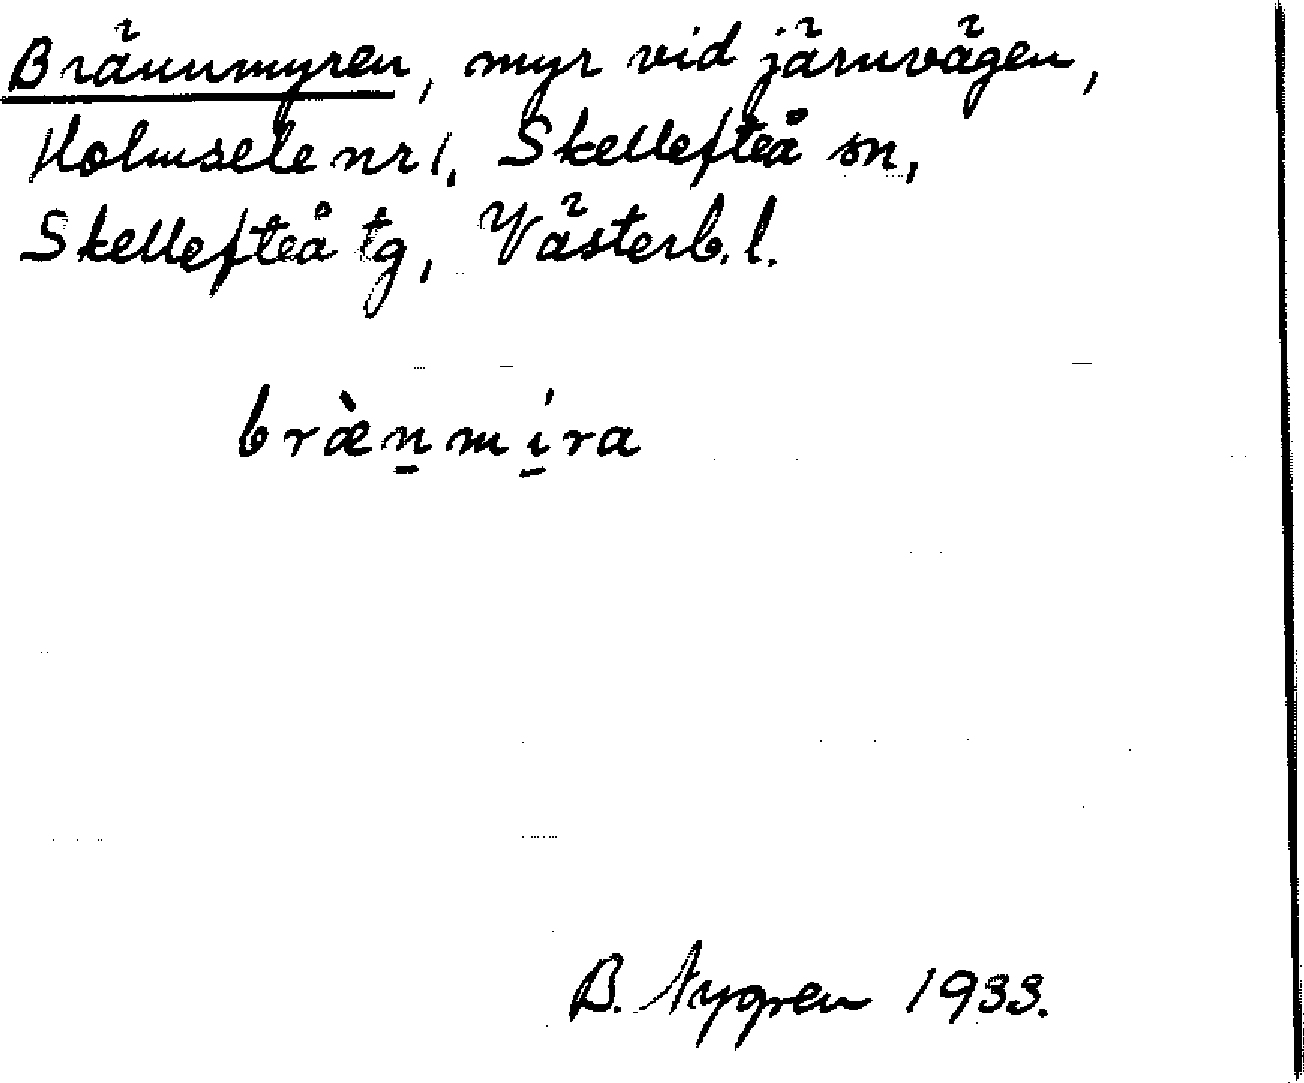 Brännmyren, myr vid järnvägen,
Holmsele nr 1, Skellefteå sn,
Skellefteå tg, Västerb. l.
bræ̀n̠mí̠ra
B. Nygren 1933.